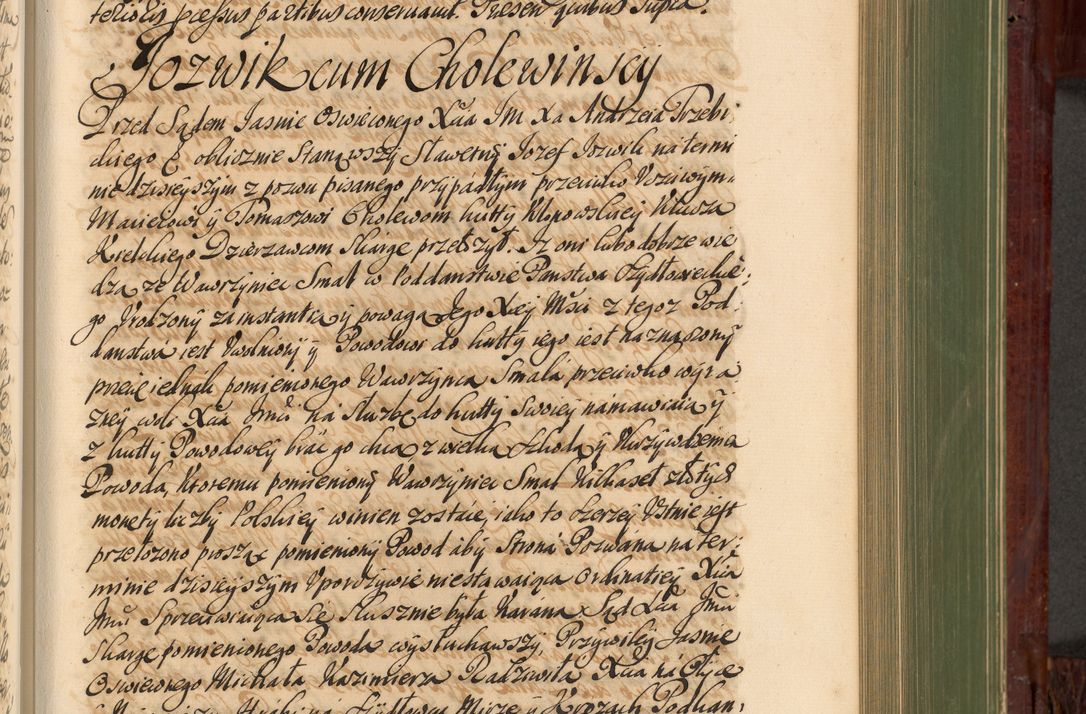 teriolis processus partibus conservavit. Presen quibus supra.
Jozwik cum Cholewinscy
Przed Sądem Jasnie Oswieconego Xcia Jm Xa Andrzeia Trzebi
ckiego &c oblicznie Stanąwszy Sławetny Jozef Jozwik na termi
nie dzisieyszym z pozwu pisanego przypadłym przeciwko Uczciwym
Macieiowi y Tomaszowi Cholewom hutty Kłopowskiey Klucza
Kieleckiego Dzierzawcom Skargę przełozył. Iz oni lubo dobrze wie
dzą ze Wawrzyniec Smal w Poddanstwie Panstwa Szydłowieckie
go Urodzony za instantią y powagą Jego Xcey Msci z tegoz Pod
danstwa iest Uwolniony y Powodowi do hutty iego iest naznaczony
przecię iednak pomienionego Wawrzynca Smala przeciwko wyra
zney woli Xcia Jmci na Służbę do hutty Swoiey namawiaią y
z hutty Powodowey brac go chcą z wielką szkodą y Ukrzywdzeniem
Powoda, Ktoremu pomieniony Wawrzyniec Smal Kilkaset złotych
monety liczby Polskiey winien zostaie, iako to szerzey Ustnie iest
przełozono prosząc pomieniony Powod aby Strona Pozwana na ter
minie dzisieyszym Uporczywie niestawaiąca Ordinatiey Xcia
Jmci Sprzeciwiaiąca Się Słusznie była Karana. Sąd Xcia Jmci
Skargę pomienionego Powoda wysłuchawszy, Przywiley Jasnie
Oswieconego Michała Kazimierza Radziwiła Xcia na Ołyce
y Nieswiezu Hrabi na Szydłowcu Mirze y Krozach Podkan